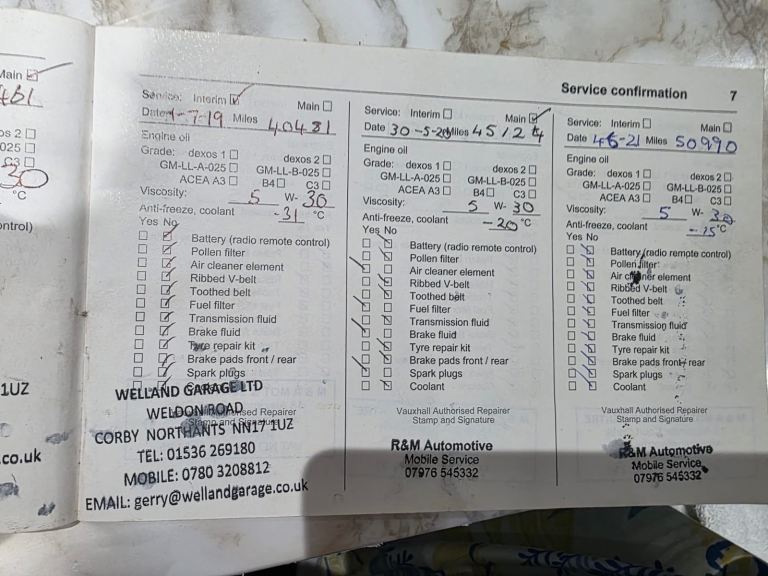 Main
481
os 2
025
C3
30
°C
ntrol)
1UZ
.co.uk
Service confirmation 7
Service: Interim Main
Date 1-7-19 Miles 40481
Engine oil
Grade: dexos 1 dexos 2
GM-LL-A-025 GM-LL-B-025
ACEA A3 B4 C3
Viscosity: 5 W- 30
Anti-freeze, coolant -31 °C
Yes No
Battery (radio remote control)
Pollen filter
Air cleaner element
Ribbed V-belt
Toothed belt
Fuel filter
Transmission fluid
Brake fluid
Tyre repair kit
Brake pads front / rear
Spark plugs
Vauxhall Authorised Repairer
Stamp and Signature
WELLAND GARAGE LTD
WELDON ROAD
CORBY NORTHANTS NN17 1UZ
TEL: 01536 269180
MOBILE: 0780 3208812
EMAIL: gerry@wellandgarage.co.uk
Service: Interim Main
Date 30-5-20 Miles 45124
Engine oil
Grade: dexos 1 dexos 2
GM-LL-A-025 GM-LL-B-025
ACEA A3 B4 C3
Viscosity: 5 W- 30
Anti-freeze, coolant -20 °C
Yes No
Battery (radio remote control)
Pollen filter
Air cleaner element
Ribbed V-belt
Toothed belt
Fuel filter
Transmission fluid
Brake fluid
Tyre repair kit
Brake pads front / rear
Spark plugs
Coolant
Vauxhall Authorised Repairer
Stamp and Signature
R&M Automotive
Mobile Service
07976 545332
Service: Interim Main
Date 4-6-21 Miles 50990
Engine oil
Grade: dexos 1 dexos 2
GM-LL-A-025 GM-LL-B-025
ACEA A3 B4 C3
Viscosity: 5 W- 30
Anti-freeze, coolant -15 °C
Yes No
Battery (radio remote control)
Pollen filter
Air cleaner element
Ribbed V-belt
Toothed belt
Fuel filter
Transmission fluid
Brake fluid
Tyre repair kit
Brake pads front / rear
Spark plugs
Coolant
Vauxhall Authorised Repairer
Stamp and Signature
R&M Automotive
Mobile Service
07976 545332